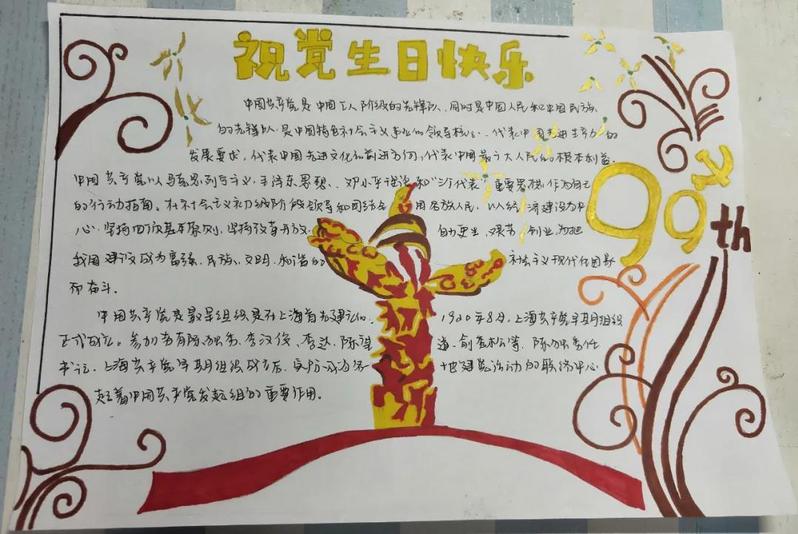 祝党生日快乐
中国共产党是中国工人阶级的先锋队,同时是中国人民和中国民族
的先锋队,是中国特色社会主义事业的领导核心,代表中国先进生产力的
发展要求,代表中国先进文化的前进方向,代表中国最广大人民的根本利益.
中国共产党以马克思列宁主义、毛泽东思想、邓小平理论和“三个代表”重要思想作为自己
的行动指南。在社会主义初级阶段领导和团结全国各族人民,以经济建设为中
心,坚持四项基本原则,坚持改革开放,自力更生,艰苦创业,为把
我国建设成为富强、民族、文明、和谐的社会主义现代化国家
而奋斗.
99th
中国共产党最早组织是在上海首先建立的,1920年8月,上海共产党早期组织
正式成立。参加者有陈独秀、李汉俊、李达、陈望道、俞秀松等,陈独秀任
书记,上海共产党早期组织成立后,实际成为各地建党活动的联络中心,
起着中国共产党发起组的重要作用。